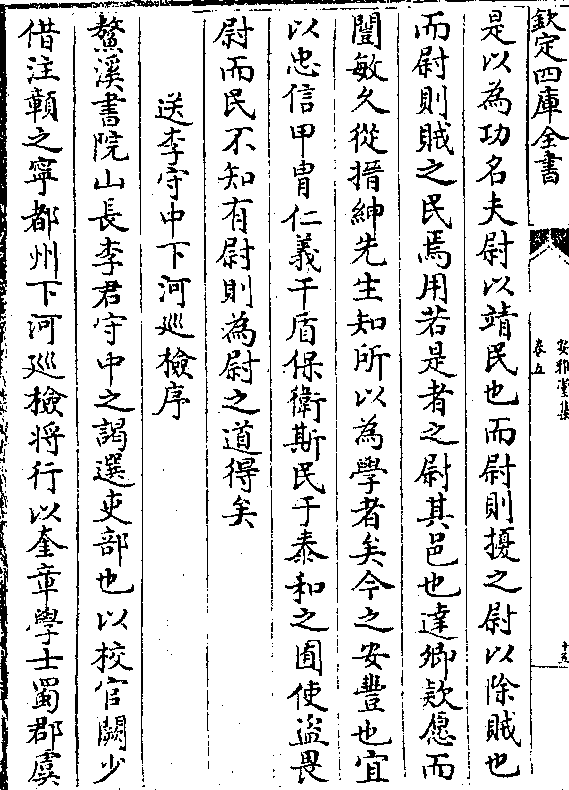 欽定四庫全書
安雅堂集
卷五
是以為功名夫尉以靖民也而尉則擾之尉以除賊也
而尉則賊之民焉用若是者之尉其邑也達卿欵愿而
闓敏久從搢紳先生知所以為學者矣今之安豐也宜
以忠信甲冑仁義干盾保衛斯民于泰和之囿使盜畏
尉而民不知有尉則為尉之道得矣
送李守中下河廵檢序
鰲溪書院山長李君守中之謁選吏部也以校官闕少
借注贑之寧都州下河廵檢將行以奎章學士蜀郡虞